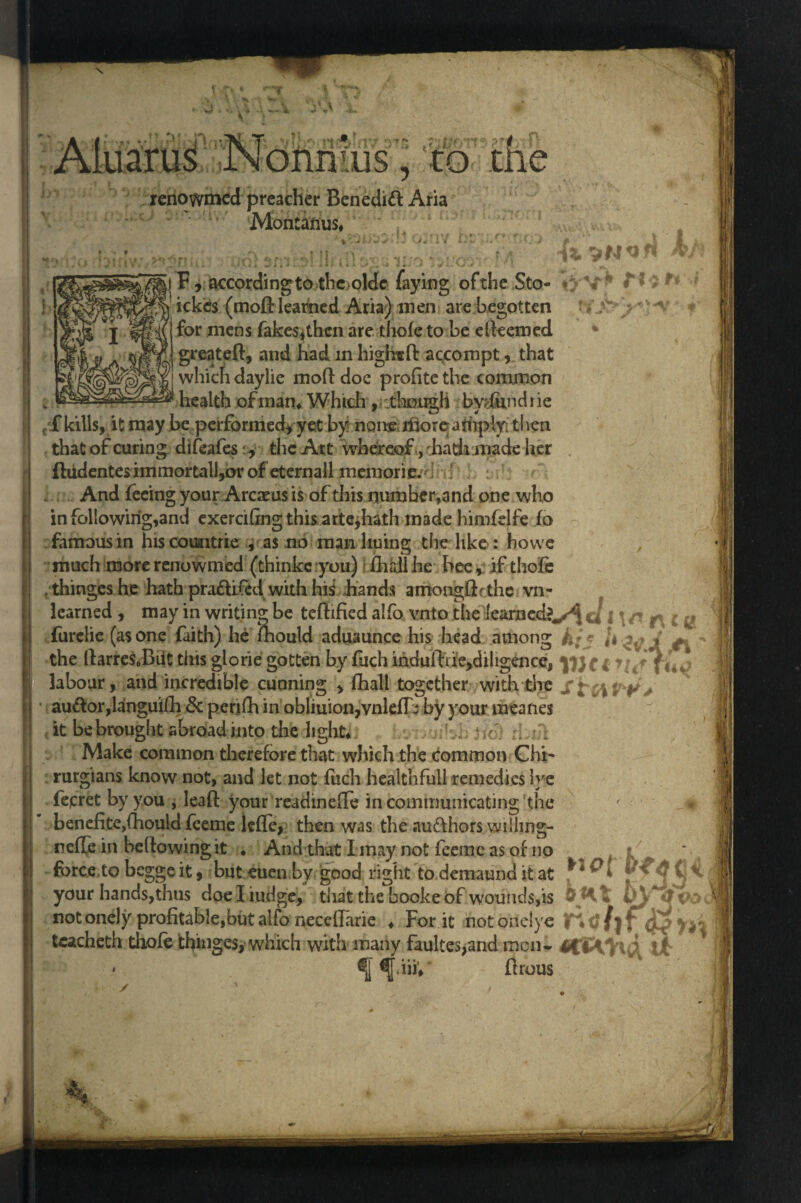 Aluarus Nonnius, to the
renowmed preacher Benedict Aria
Montanus.
IF, according to the olde ſaying of the Sto-
ickes (moſt learned Aria) men are begotten
for mens ſakes, then are thoſe to be eſteemed
greateſt, and had in higheſt accompt, that
which daylie moſt doe profite the common
health of man. Which, though by ſundrie
ſkills, it may be performed, yet by none more amply, then
that of curing diſeaſes, the Art whereof, hath made her
ſtudentes immortall, or of eternall memorie.
And ſeeing your Arcæus is of this number, and one who
in following, and exerciſing this arte, hath made himſelfe ſo
famous in his countrie, as no man liuing the like: howe
much more renowmed (thinke you) ſhall he bee, if thoſe
thinges he hath practiſed with his hands amongſt the vn-
learned, may in writing be teſtified alſo vnto the learned?
ſurelie (as one ſaith) he ſhould aduaunce his head among
the ſtarres. But this glorie gotten by ſuch induſtrie, diligence,
labour, and incredible cunning, ſhall together with the
auctor, languiſh & periſh in obliuion, vnleſſe by your meanes
it be brought abroad into the light.
Make common therefore that which the common Chi-
rurgians know not, and let not ſuch healthfull remedies lye
ſecret by you, leaſt your readineſſe in communicating the
benefite, ſhould ſeeme leſſe, then was the aucthors willing-
neſſe in beſtowing it. And that I may not ſeeme as of no
force to begge it, but euen by good right to demaund it at
your hands, thus doe I iudge, that the booke of wounds, is
not onely profitable, but alſo neceſſarie. For it not onelye
teacheth thoſe thinges, which with many faultes, and mon-
¶ ¶.iii. ſtrous